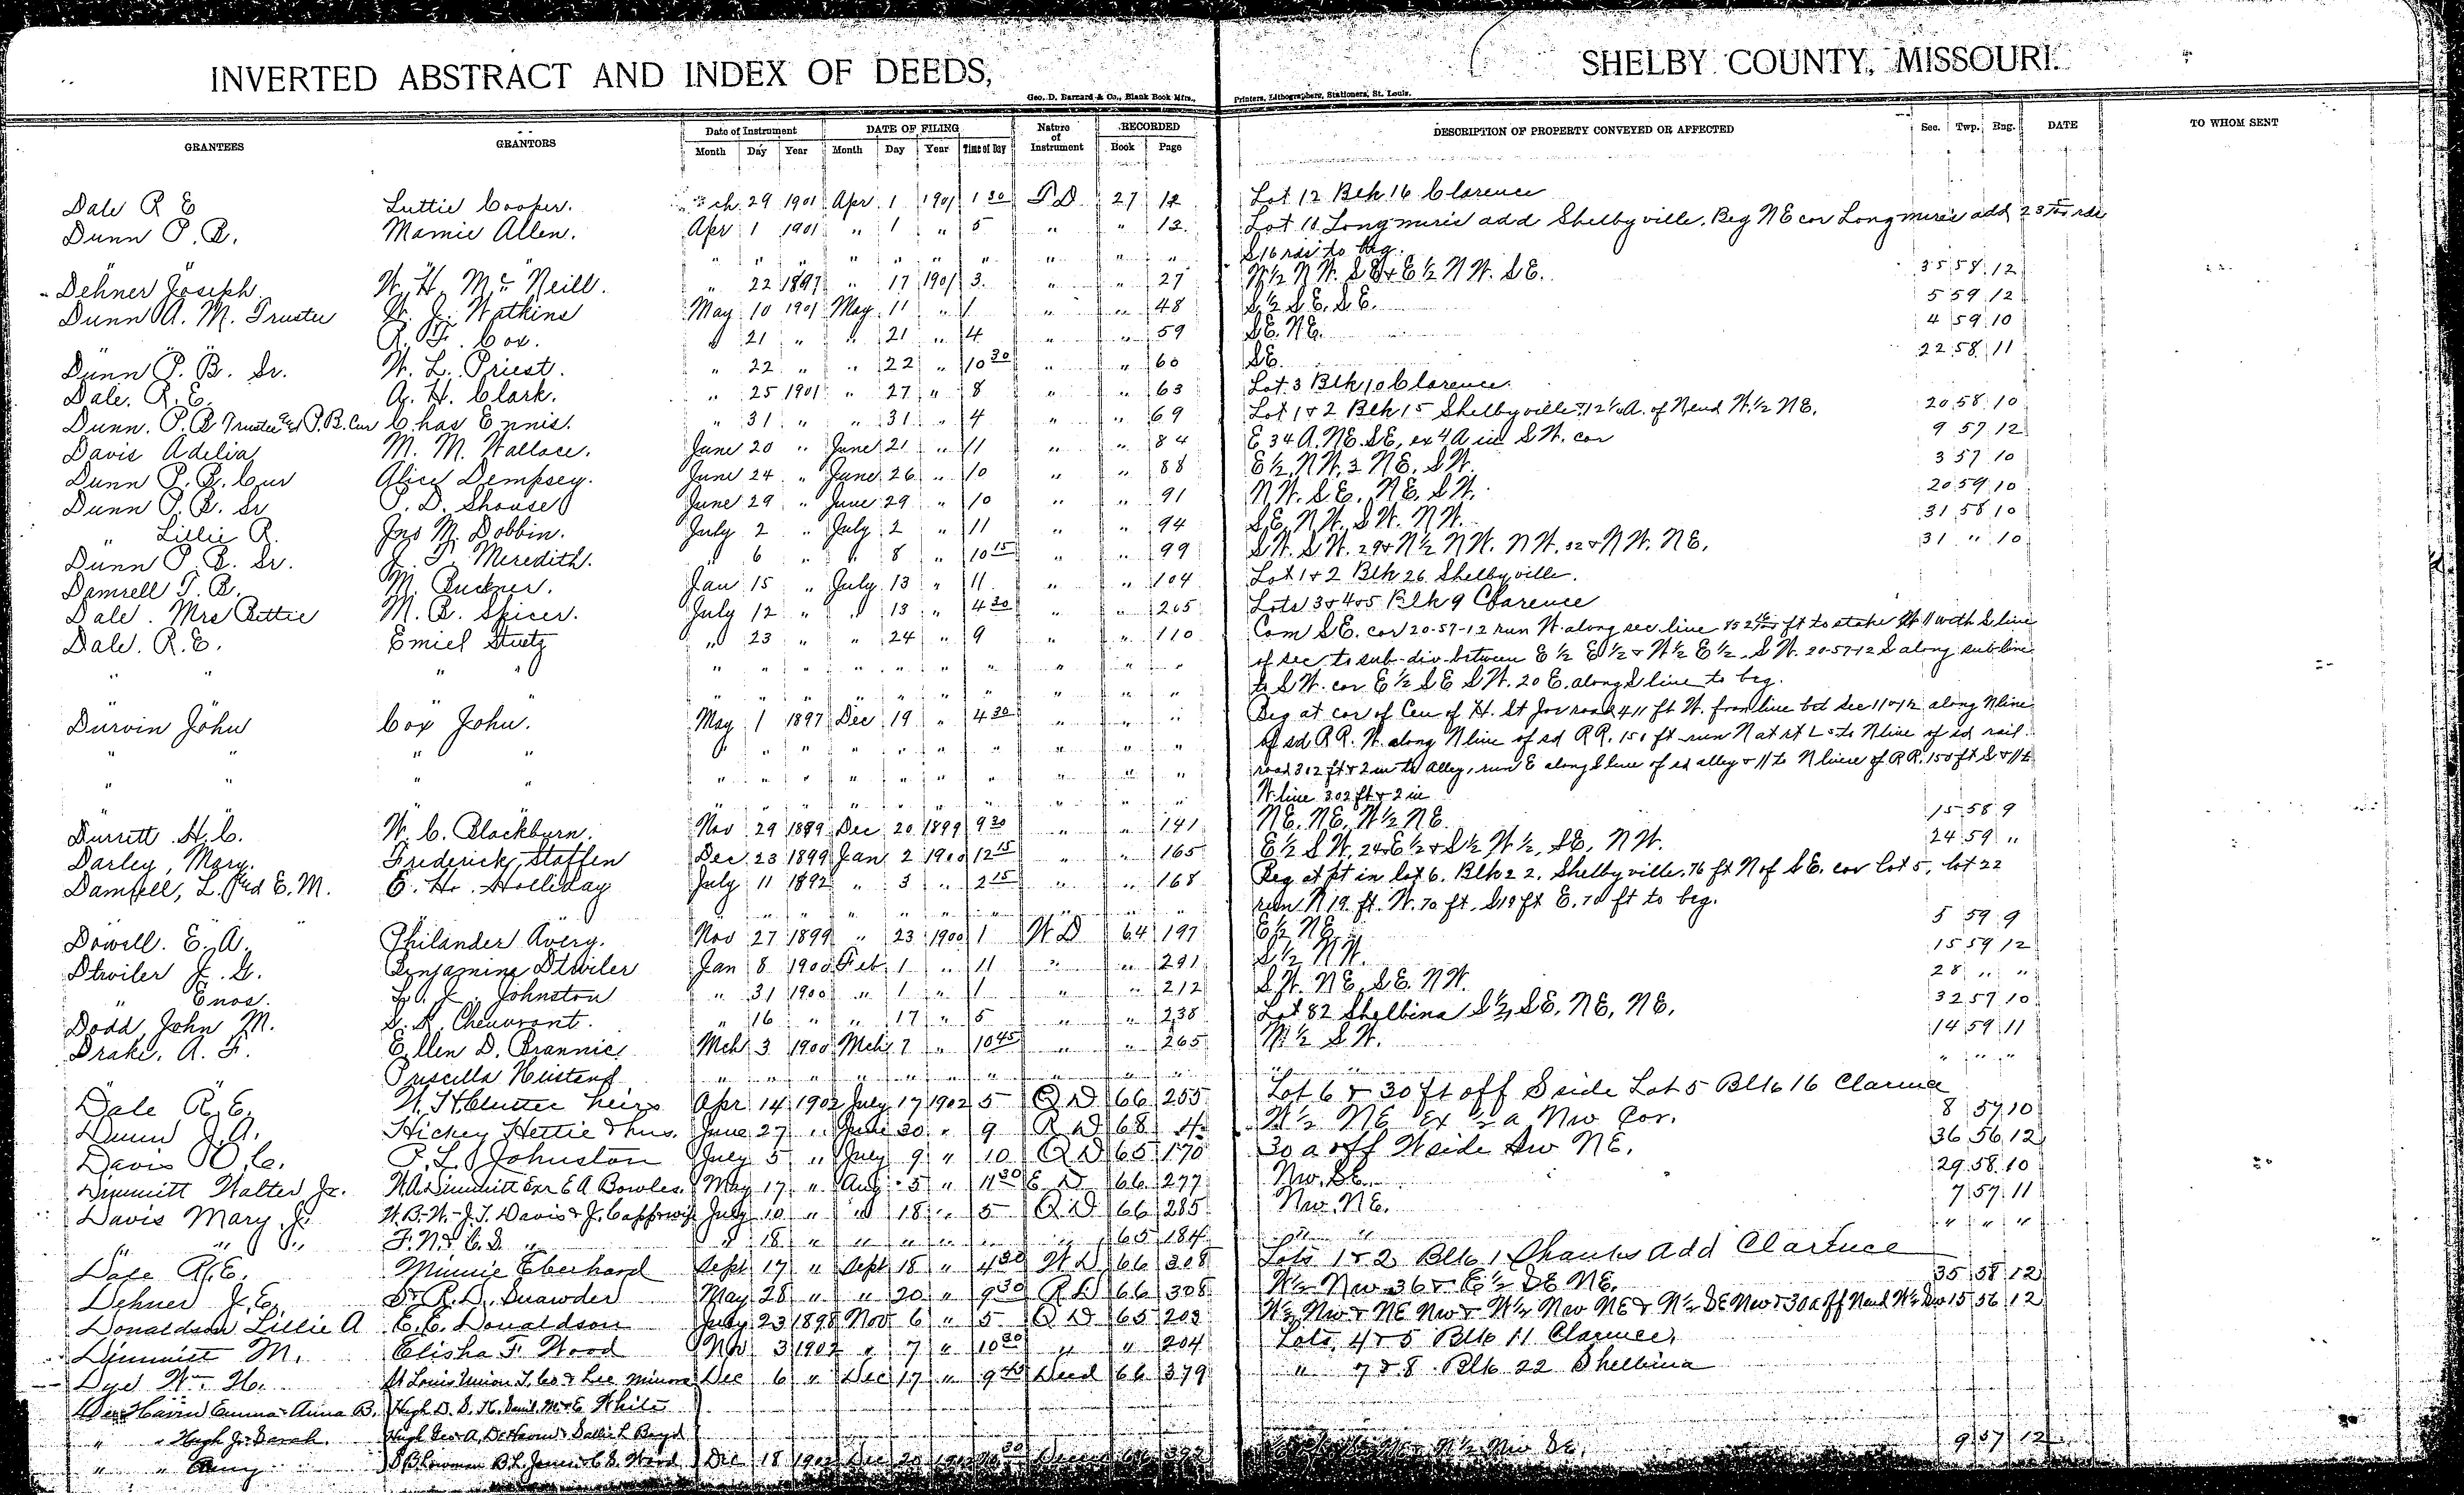 INVERTED ABSTRACT AND INDEX OF DEEDS, SHELBY COUNTY, MISSOURI.
Geo. D. Barnard & Co., Blank Book Mfrs., Printers, Lithographers, Stationers, St. Louis.
GRANTEES GRANTORS Date of Instrument DATE OF FILING Nature of Instrument RECORDED DESCRIPTION OF PROPERTY CONVEYED OR AFFECTED Sec. Twp. Rng. DATE TO WHOM SENT
Month Day Year Month Day Year Time of Day Book Page
Dale R E Luttie Cooper. ch 29 1901 Apr 1 1901 1 30 T D 27 12 Lot 12 Blk 16 Clarence
Dunn P. B. Mamie Allen. Apr 1 1901 " 1 " 5 " " 12 Lot 10 Longmires add Shelbyville. Beg NE cor Longmires add 23 rds
" " " " " " " " " " " S 16 rds to beg.
Dehner Joseph W. H. McNeill. " 22 1897 " 17 1901 3 " " 27 N½ N W. S E & E½ N W. S E. 35 58 12
Dunn A. M. Trustee J. Watkins May 10 1901 May 11 " 1 " " 48 S½ S E. S E. 5 59 12
" R. F. Cox. " 21 " " 21 " 4 " " 59 S E. N E. 4 59 10
Dunn P. B. Sr. W. L. Priest. " 22 " " 22 " 10 30 " " 60 S E. 22 58 11
Dale. R. E. A. H. Clark. " 25 1901 " 27 " 8 " " 63 Lot 3 Blk 10 Clarence
Dunn. P. B Trustee & P. B. Cur Chas Ennis. " 31 " " 31 " 4 " " 69 Lot 1 & 2 Blk 15 Shelbyville & 12 A. of N end W. ½ N E. 20 58 10
Davis Adelia M. M. Wallace. June 20 " June 21 " 11 " " 84 E 34 A. NE. S E, ex 4 A in S W. cor 9 57 12
Dunn P. B. Cur Alice Dempsey. June 24 " June 26 " 10 " " 88 E½ N W. 3 N E. S W. 3 57 10
Dunn P. B. Sr P. D. Shouse June 29 " June 29 " 10 " " 91 N W. S E. N E. S W. 20 59 10
" Lillie R. Jno M. Dobbin. July 2 " July 2 " 11 " " 94 S E. N W. S W. N W. 31 58 10
Dunn P. B. Sr. J. T. Meredith. " 6 " " 8 " 10 15 " " 99 S W. S W. 29 & N½ N W. N W. 32 & N W. N E. 31 " 10
Damrell T. B. M. Buckner. Jan 15 " July 13 " 11 " " 104 Lot 1 & 2 Blk 26 Shelbyville.
Dale. Mrs Bettie M. B. Spicer. July 12 " " 13 " 4 30 " " 205 Lots 3 & 4 & 5 Blk 9 Clarence
Dale. R. E. Emiel Stuetz " 23 " " 24 " 9 " " 110 Com S E. cor 20-57-12 run W. along sec. line ft to stake 11 with S line
" " " " " " " " " " " " of sec. to sub-div between E ½ E ½ & W. ½ E ½ S W. 20-57-12 S along sub line
" " " " " " " " " to S W. cor E ½ S E S W. 20 E. along S line to beg.
Durvin John Cox John. May 1 1897 Dec 19 " 4 30 " " " Beg at cor of Cen of H. St Joe road 411 ft W. from line bet sec 11 & 12 along N line
" " " " " " " " " " " " " of sd R R. W. along N line of sd R R. 150 ft run N at rt L s to N line of sd rail
" " " " " " " " " " " " " road 302 ft & 2 in to alley, run E along S line of sd alley & 11 to N line of R R. 150 ft S & 11 to
" " " " " " " " " W line 302 ft & 2 in
Durrett H. C. W. C. Blackburn. Nov 29 1899 Dec 20 1899 9 30 " " 141 N E. N E. W½ N E 15 58 9
Darley, Mary. Frederick Staffen Dec 23 1899 Jan 2 1900 12 15 " " 165 E½ S W. 24 & E½ & S½ W ½, S E, N W. 24 59 "
E. M. E. H. Holliday July 11 1892 " 3 " 2 15 " " 168 Beg at pt in lot 6. Blk 22. Shelbyville. 76 ft N of S E. cor lot 5, lot 22
" " " " " " " " " run N 19 ft. W. 70 ft S 19 ft E. 70 ft to beg.
Dowell. E. A. Philander Avery. Nov 27 1899 " 23 1900 1 W D 64 197 E½ N E. 5 59 9
Dtwiler J. G. Benjamine Dtwiler Jan 8 1900 Feb 1 " 11 " " 291 S½ N W. 15 59 12
" Enos. L. J. Johnston " 31 1900 " 1 " 1 " " 212 S W. N E, S E. N W. 28 " "
Dodd, John M. S. R. Cheuvront. " 16 " " 17 " 5 " " 238 Lot 82 Shelbina S ½, S E, N E, N E. 32 57 10
Drake, A. F. Ellen D. Brannic Mch 3 1900 Mch 7 " 10 45 " " 265 W ½ S W. 14 59 11
" Priscilla Heistand " " " " " " " " " " " " "
Dale R. E. W. T. Clutter heirs Apr 14 1902 July 17 1902 5 Q D 66 255 Lot 6 & 30 ft off S side Lot 5 Blk 16 Clarence
Dunn J. A. Hickey Hettie & hus. June 27 " June 30 " 9 R D 68 4 W½ NE Ex ½ a Nw Cor. 8 57 10
Davis O. C. P. L. Johnston July 5 " July 9 " 10 Q D 65 170 30 a off W side Sw N E. 36 56 12
Dimmitt Walter Jr. W. A. Dimmitt Exr E A Bowles. May 17 " Aug 5 " 11 30 E D 66 277 Nw. S E. 29 58 10
Davis Mary J. W. B.-W.-J. T. Davis & J. Capp & wife July 10 " " 18 " 5 Q D 66 285 Nw. N E. 7 57 11
" " J. F. N. & C. S. " " 18 " " " " " " 65 184 " " " " "
Dale R. E. Minnie Eberhard Sept 17 " Sept 18 " 4 30 W D 66 308 Lots 1 & 2 Blk 1 Shanks Add Clarence
Dehner J. E. R. D. May 28 " " 20 " 9 30 R D 66 308 W½ Nw 36 & E ½ SE NE. 35 58 12
Donaldson Lillie A E. E. Donaldson July 23 1898 Nov 6 " 5 Q D 65 203 W½ Nw & NE Nw & W½ Nw NE & N½ SE Nw & 30 a off N end W½ Sw 15 56 12
Dimmitt M. Elisha F. Wood Nov 3 1902 " 7 " 10 30 " " 204 Lots 4 & 5 Blk 11 Clarence,
Dye Wm. H. St Louis Union T. Co & Lee Minor Dec 6 " Dec 17 " 9 Deed 66 379 " 7 & 8 Blk 22 Shelbina
DeHaven Emma & Anna B. Hugh D. S. H. White
" " Hugh J. & Sarah. Hugh Geo A. DeHaven & Sallie L Boyd
" " Amy S B Bowman B. L. Jones & C. S. Wood Dec 18 1902 Dec 20 1902 66 392 N ½ Nw S E. 9 57 12